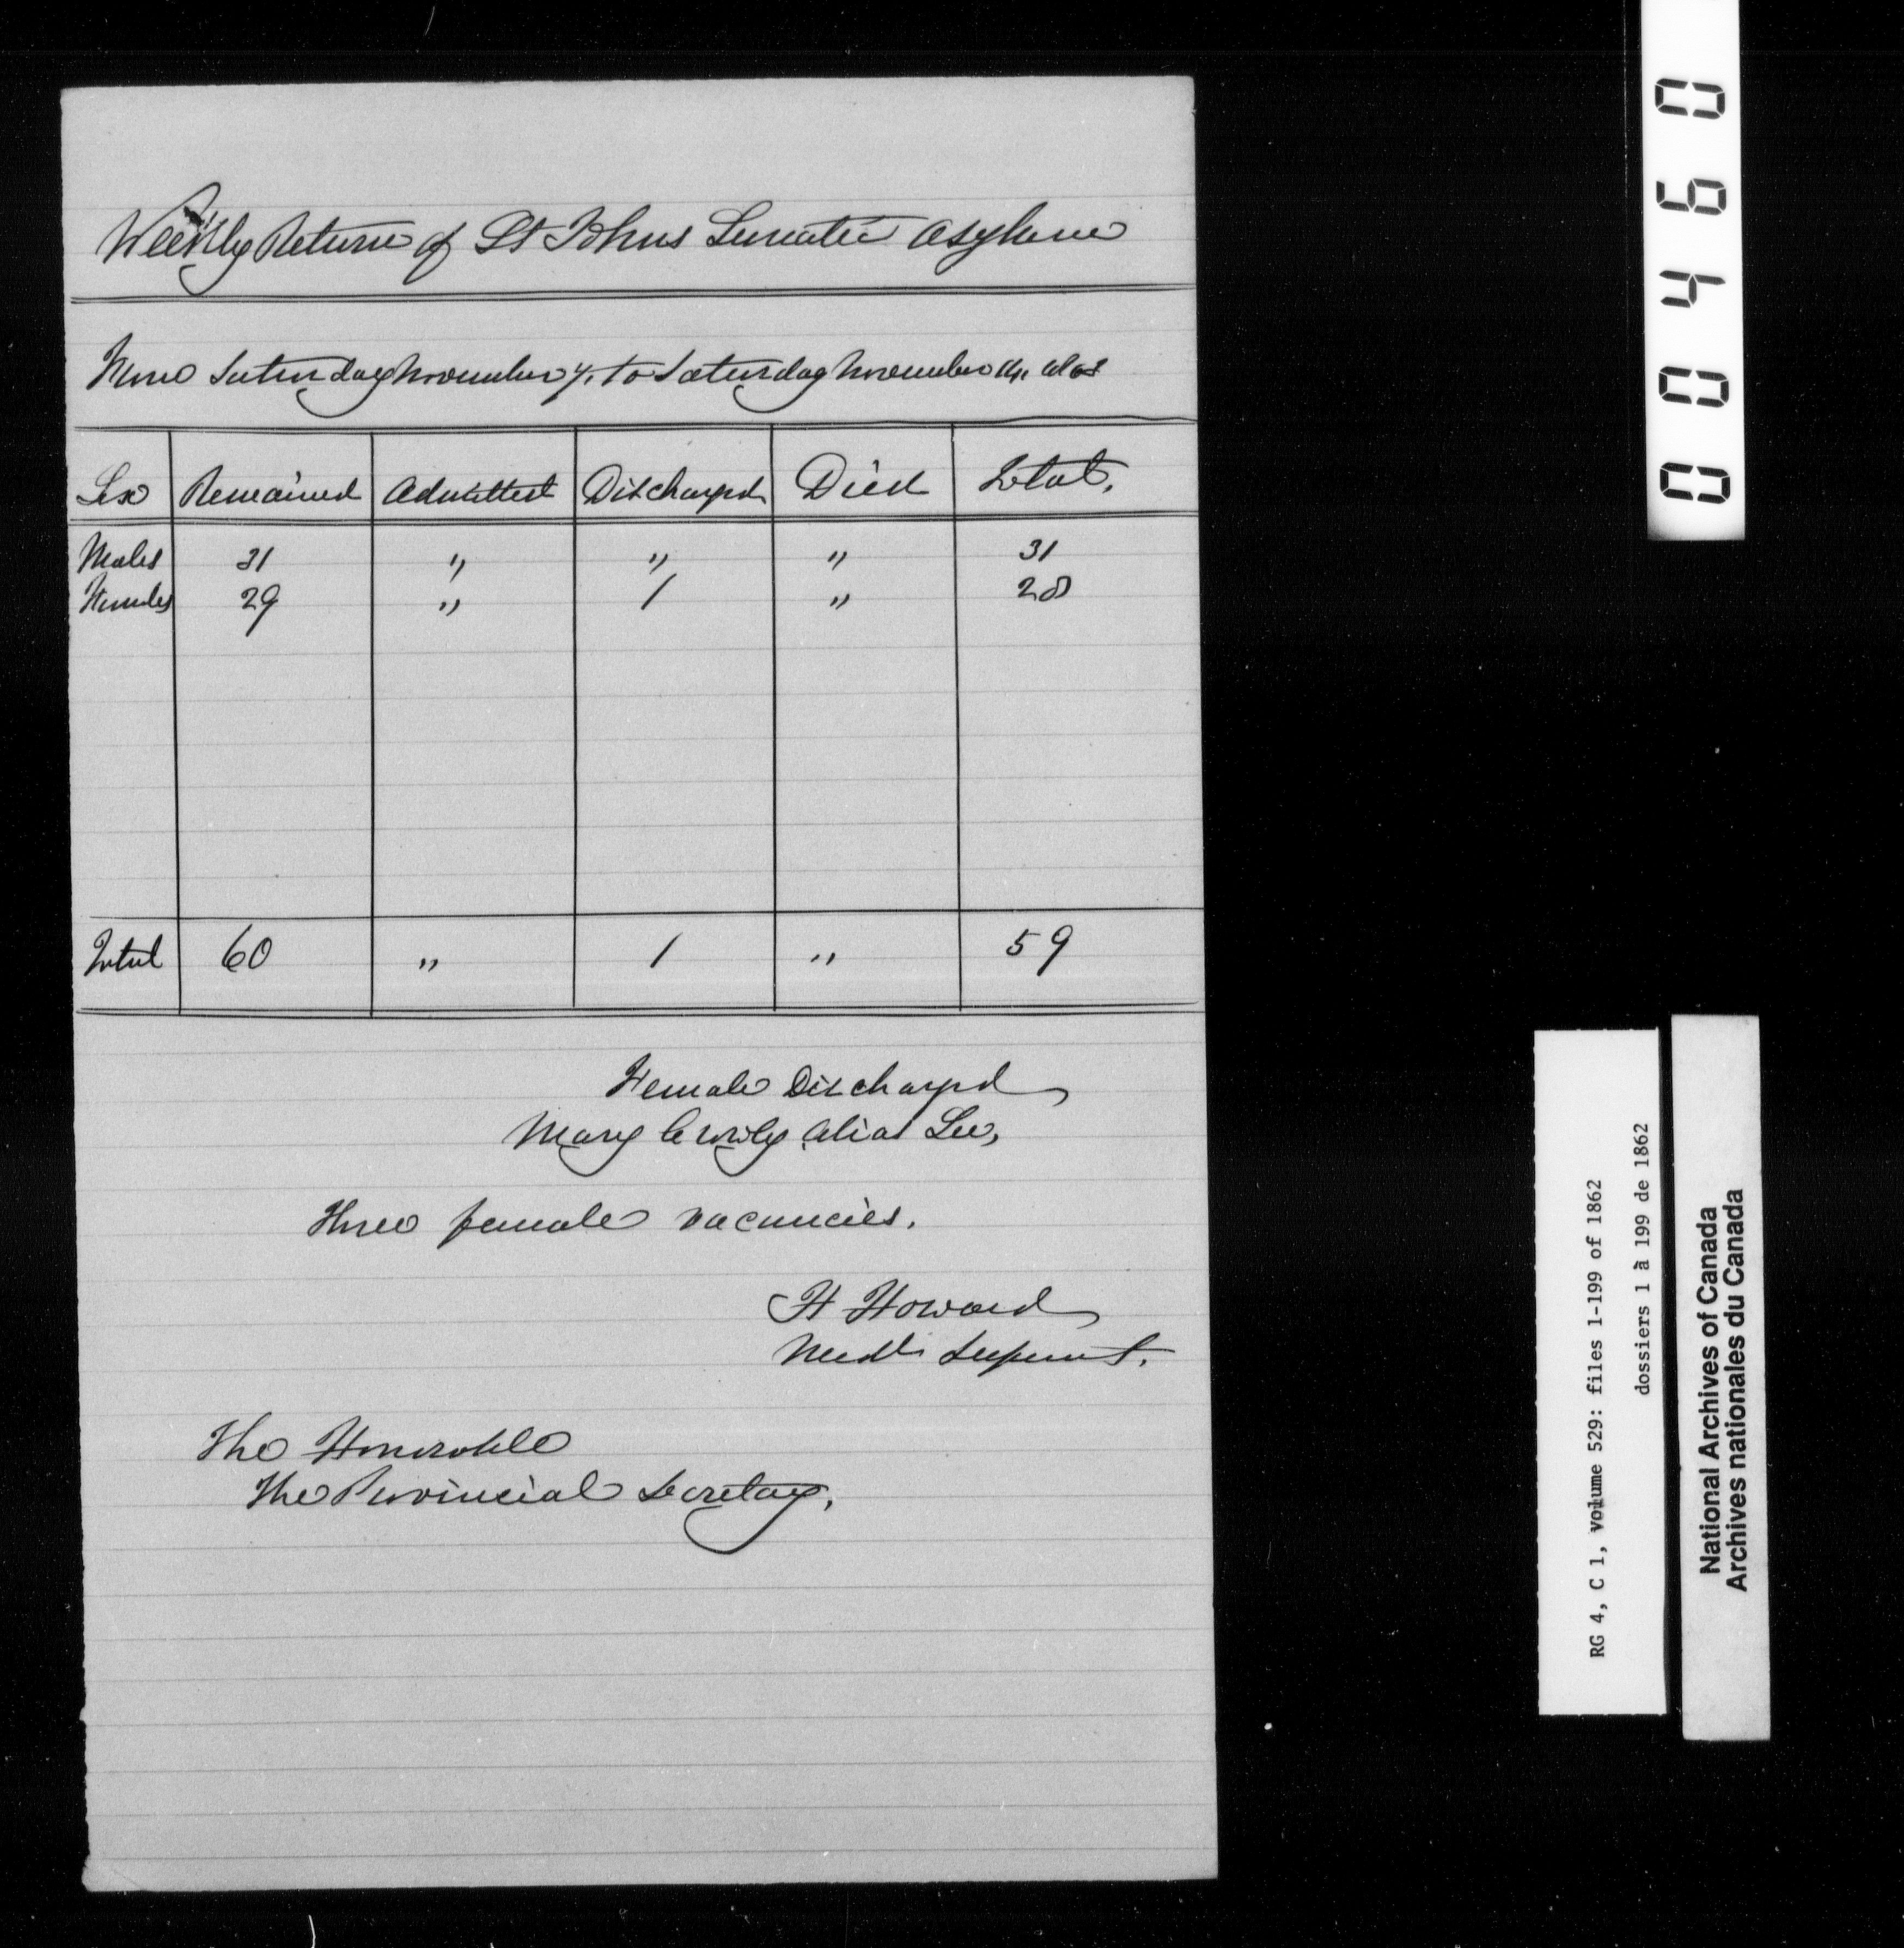 Weekly Return of St Johns Lunatic Asylum
From Saturday November 7. to Saturday November 14.
Sex Remained Admitted Discharged Died Total.
Males 31 " " " 31
Females 29 " 1 " 28
Total 60 " 1 " 59
Female Discharged
Mary Alias Lee,
Three female vacancies.
H Howard
Medl. Superint.
The Honorable
The Provincial Secretary.
00460
RG 4, C 1, volume 529: files 1-199 of 1862
dossiers 1 à 199 de 1862
National Archives of Canada
Archives nationales du Canada